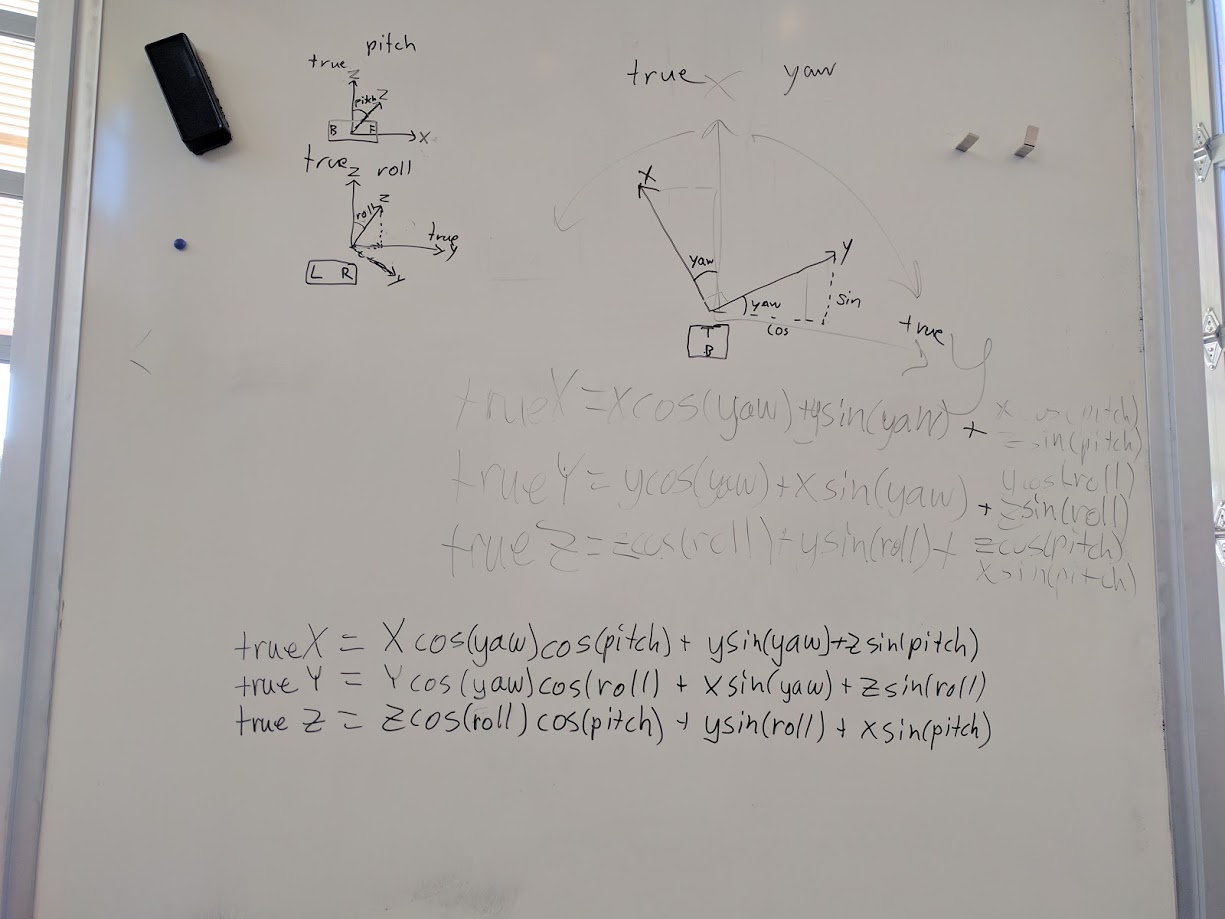 pitch
true
Z
pitch Z
B F
X
true
Z roll
roll Z
true
y
L R
y
true X yaw
X
yaw
Y
yaw
sin
cos
true y
T
B
trueX = xcos(yaw) + ysin(yaw) + x cos(pitch)
zsin(pitch)
trueY = ycos(yaw) + x sin(yaw) + ycos(roll)
zsin(roll)
true Z = zcos(roll) + ysin(roll) + zcos(pitch)
xsin(pitch)
trueX = X cos(yaw)cos(pitch) + ysin(yaw)+zsin(pitch)
true Y = Y cos(yaw)cos(roll) + xsin(yaw) + zsin(roll)
true Z = Zcos(roll) cos(pitch) + ysin(roll) + xsin(pitch)